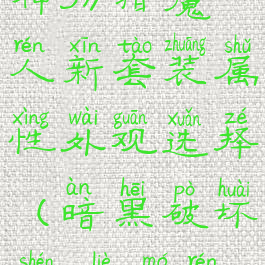 神3》猎魔
rén xīn tào zhuāng shǔ
人新套装属
xìng wài guān xuǎn zé
性外观选择
àn hēi pò huài
（暗黑破坏
shén liè mó rén